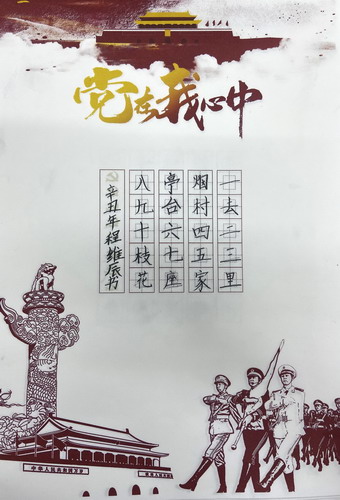 党在我心中
一去二三里
烟村四五家
亭台六七座
八九十枝花
辛丑年程维辰书
中华人民共和国万岁